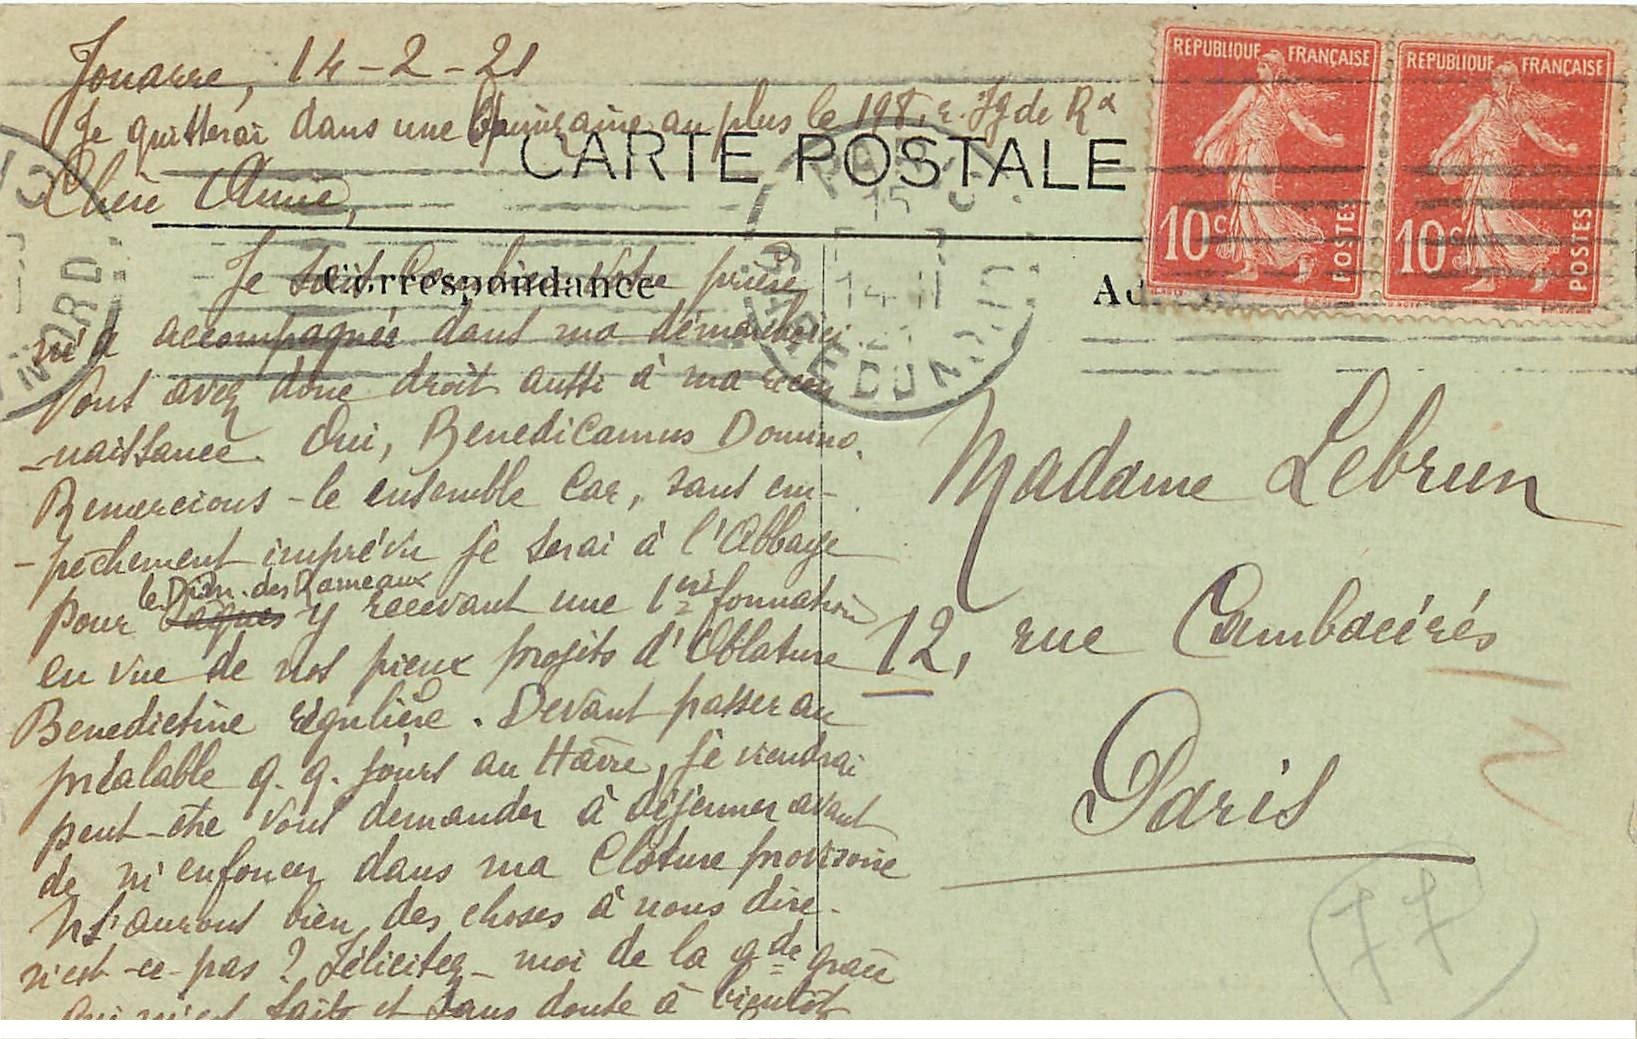 Jouarre, 14-2-21
Je quitterai dans une quinzaine au plus le 198, r. Fg de R
CARTE POSTALE
Chère Amie,
Correspondance
Je sais combien votre prière
m'a accompagnée dans ma démarche ici
Vous avez donc droit aussi à ma recon
-naissance. Oui, Benedicamus Domino.
Remercions-le ensemble car, sans em-
-pêchement imprévu je serai à l'Abbaye
le Dim. des Rameaux
pour Pâques y recevant une 1ère formation
en vue de nos pieux projets d'Oblature
Benedictine régulière. Devant passer au
préalable q.q. jours au Havre, je viendrai
peut-être vous demander à déjeuner avant
de m'enfoncer dans ma Clôture provisoire
Ns aurons bien des choses à nous dire.
n'est-ce-pas? Félicitez-moi de la gde grâce
qui m'est faite et sans doute à bientôt
REPUBLIQUE FRANÇAISE
10c
POSTES
REPUBLIQUE FRANÇAISE
10c
POSTES
PARIS
15
14 II
GARE DU NORD
NORD
Madame Lebrun
12, rue Cambacérés
Paris
77